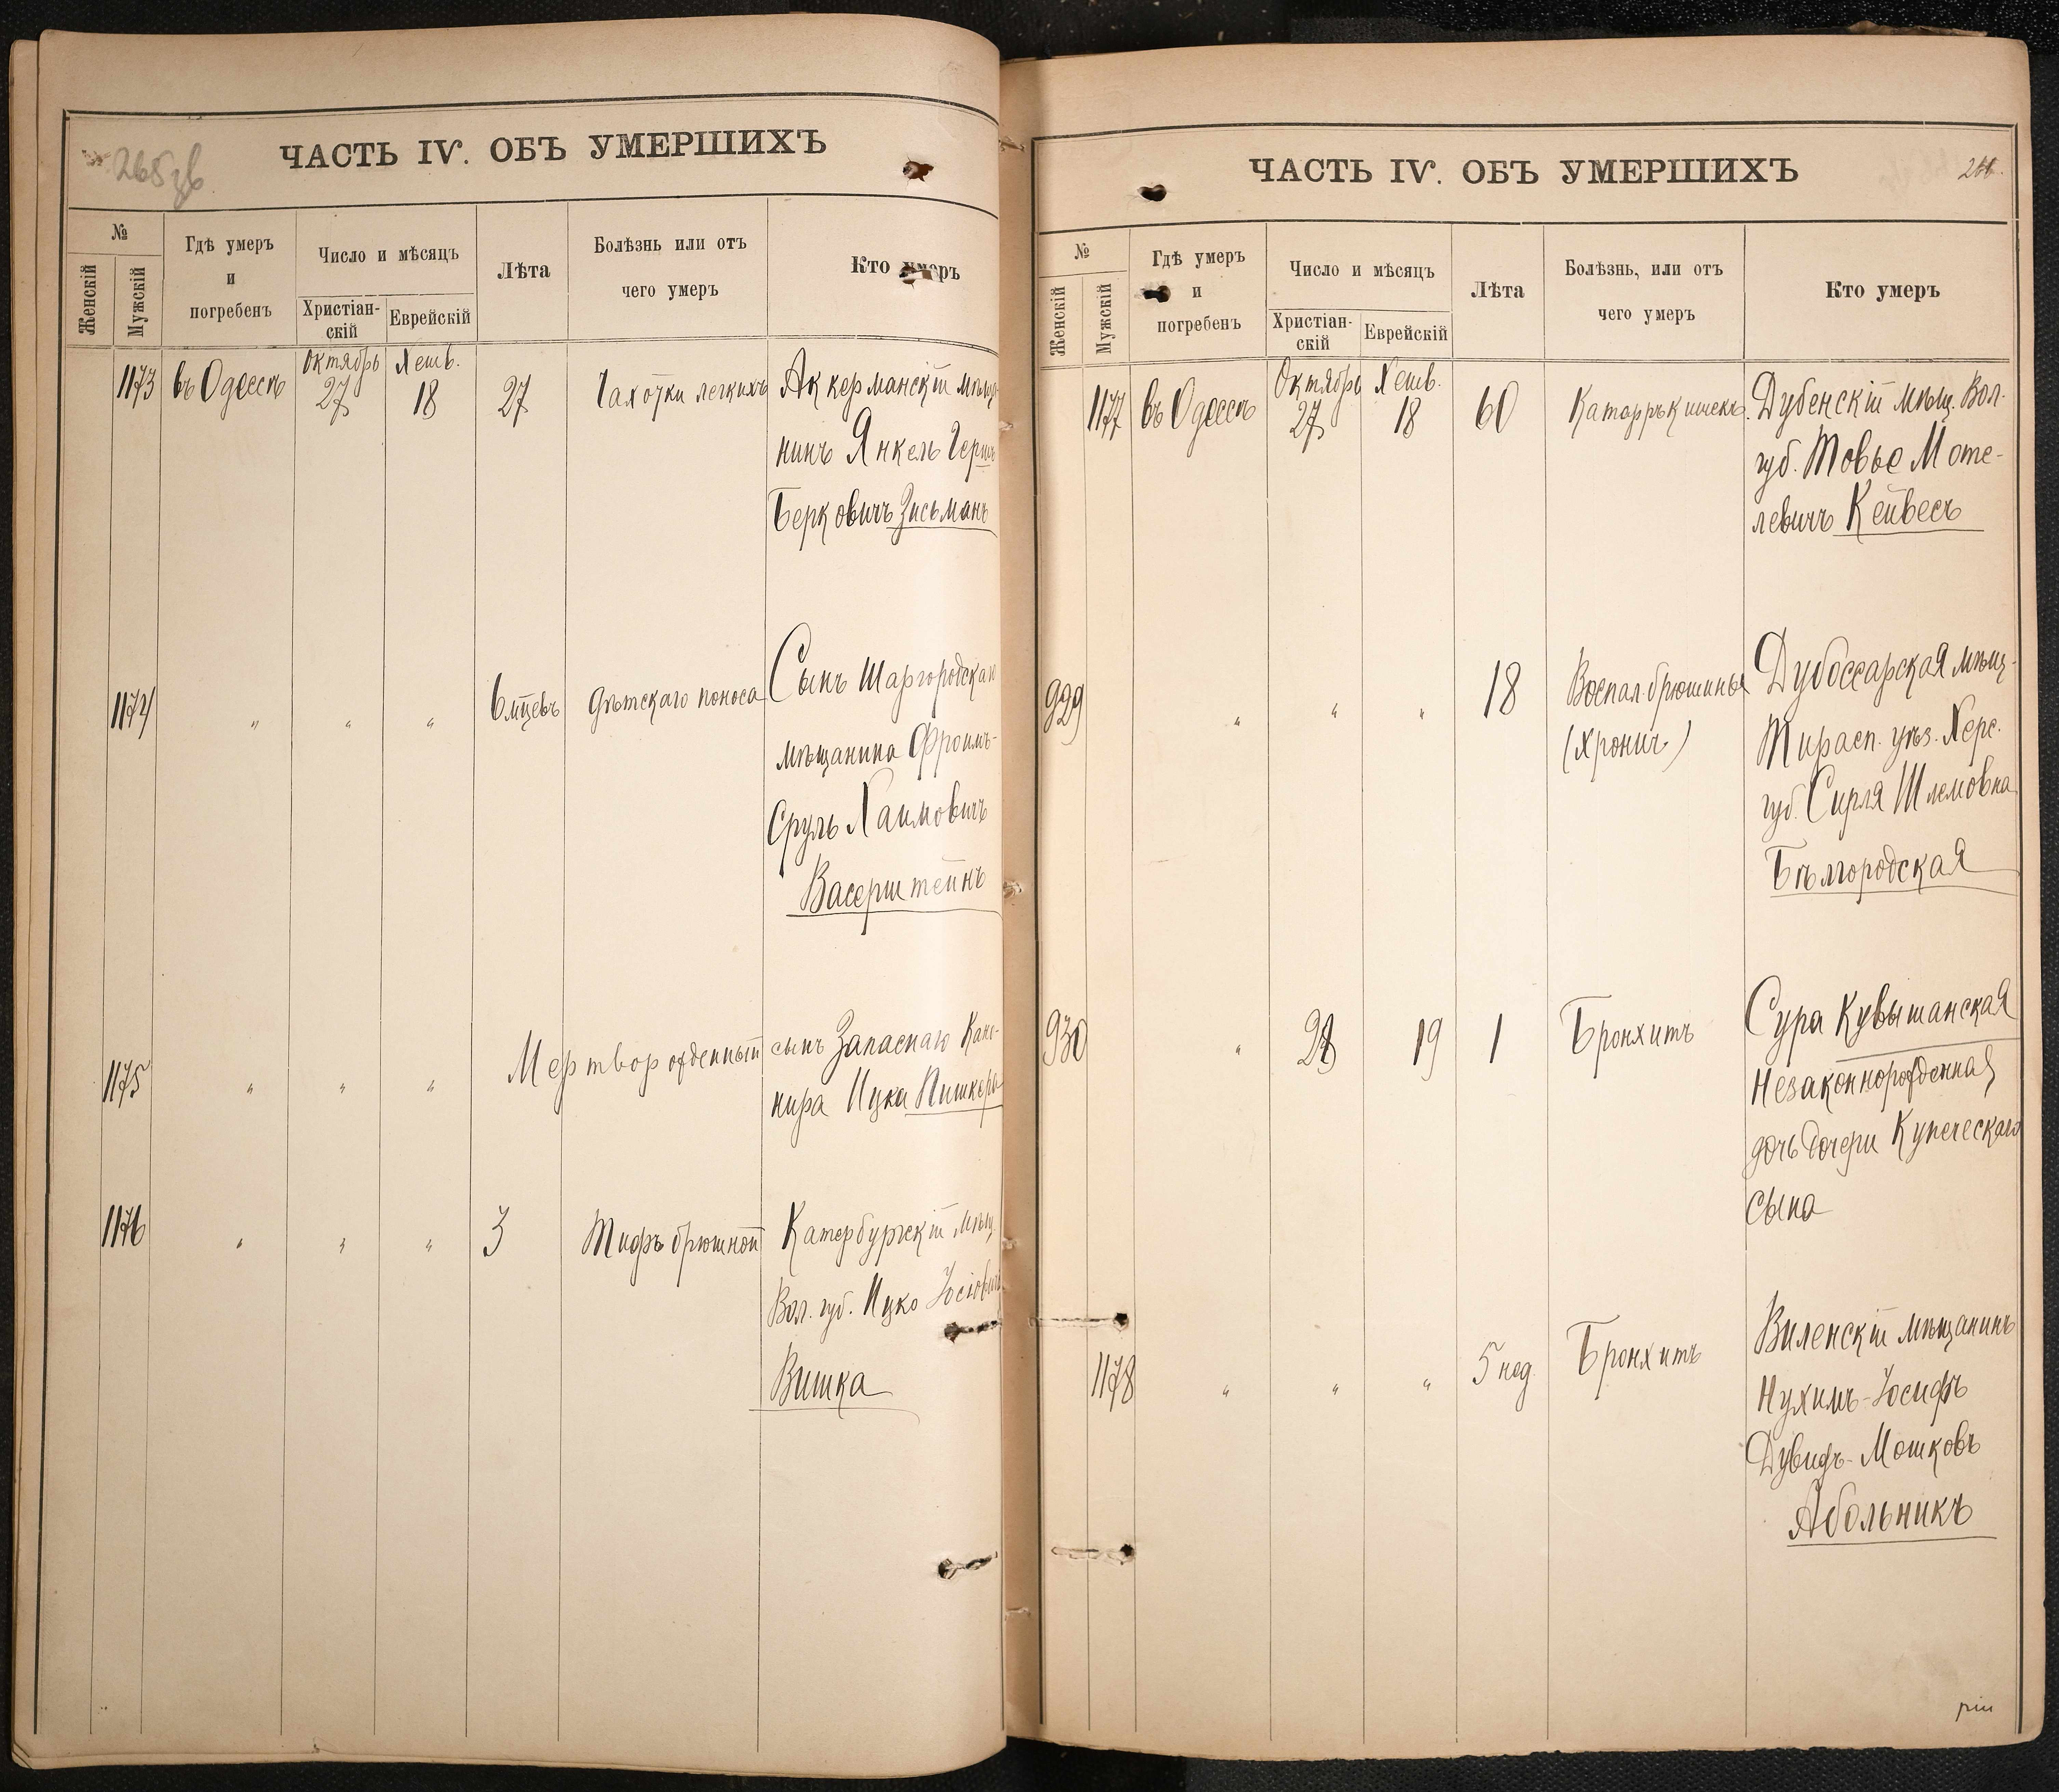 265 зв
ЧАСТЬ IV. ОБЪ УМЕРШИХЪ
№
Женскій
Мужскій
Гдѣ умеръ
и
погребенъ
Число и мѣсяцъ
Христіан-
скій
Еврейскій
Лѣта
Болѣзнь или отъ
чего умеръ
Кто умеръ
Октябрь Хешв.
1173 въ Одессѣ 27 18 27 Чахотки легкихъ Аккерманскій мѣща-
нинъ Янкель Герш
Берковичъ Зисьманъ
1174 " " " 6 мцевъ Дѣтскаго поноса Сынъ Шаргородскаго
мѣщанина Фроимъ-
Сруль Хаимовичъ
Васерштейнъ
1175 " " " Мертворожденный сынъ Запаснаго Кано-
нира Ицки Пишкера
1176 " " " 3 Тифъ брюшной Катербургскій мѣщ.
Вол. губ. Ицко Іосіовичъ
Вишка
ЧАСТЬ IV. ОБЪ УМЕРШИХЪ
266.
№
Женскій
Мужскій
Гдѣ умеръ
и
погребенъ
Число и мѣсяцъ
Христіан-
скій
Еврейскій
Лѣта
Болѣзнь, или отъ
чего умеръ
Кто умеръ
Октябрь Хешв.
1177 въ Одессѣ 27 18 60 Катарръ кишекъ. Дубенскій мѣщ. Вол.
губ. Товье Моте-
левичъ Кейвесъ
929 " " " 18 Воспал. брюшины Дубоссарская мѣщ-
(хронич.) Тирасп. уѣз. Херс.
губ. Сирля Шлемовна
Бѣлгородская
930 " 28 19 1 Бронхитъ Сура Кувышанская
Незаконнорожденная
дочь дочери Купеческаго
сына
1178 " " " 5 нед. Бронхитъ Виленскій мѣщанинъ
Нухимъ-Іосифъ
Дувидъ-Мошковъ
Абольникъ